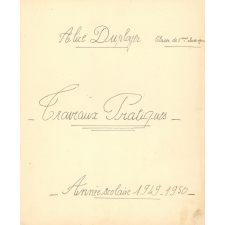 Alice Duployer Classe de 5ème
_ Travaux Pratiques _
_ Année scolaire 1949_1950 _